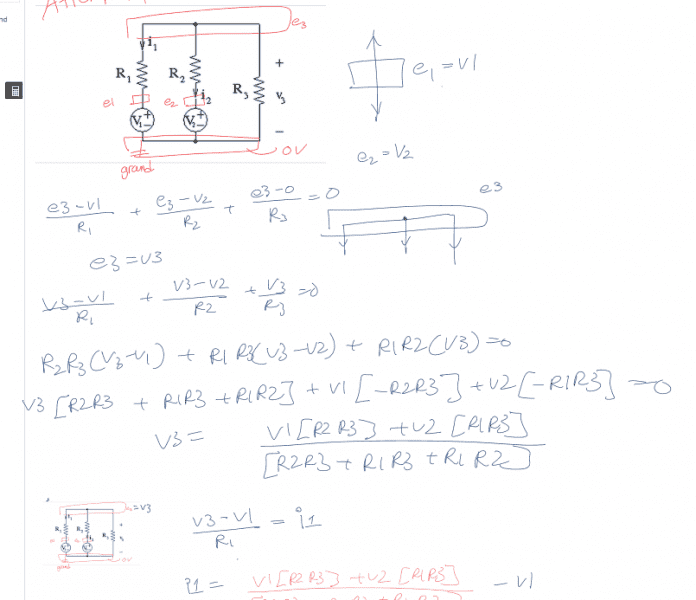 nd
e3
i1
+
R1
R2
R3
v3
e1
e2
i2
V1
+
−
V2
+
−
−
0V
grand
e1 = v1
e2 = V2
e3−v1 / R1 + e3−v2 / R2 + e3−0 / R3 = 0
e3
e3 = v3
v3−v1 / R1 + v3−v2 / R2 + v3 / R3 = 0
R2R3(V3−V1) + R1 R3(v3−v2) + R1R2(V3) = 0
v3 [R2R3 + R1R3 + R1R2] + v1 [−R2R3] + v2 [−R1R3] = 0
v3 = v1[R2R3] + v2 [R1R3] / [R2R3 + R1R3 + R1R2]
= v3
v3−v1 / R1 = i1
i1 = v1[R2R3] + v2 [R1R3] − v1